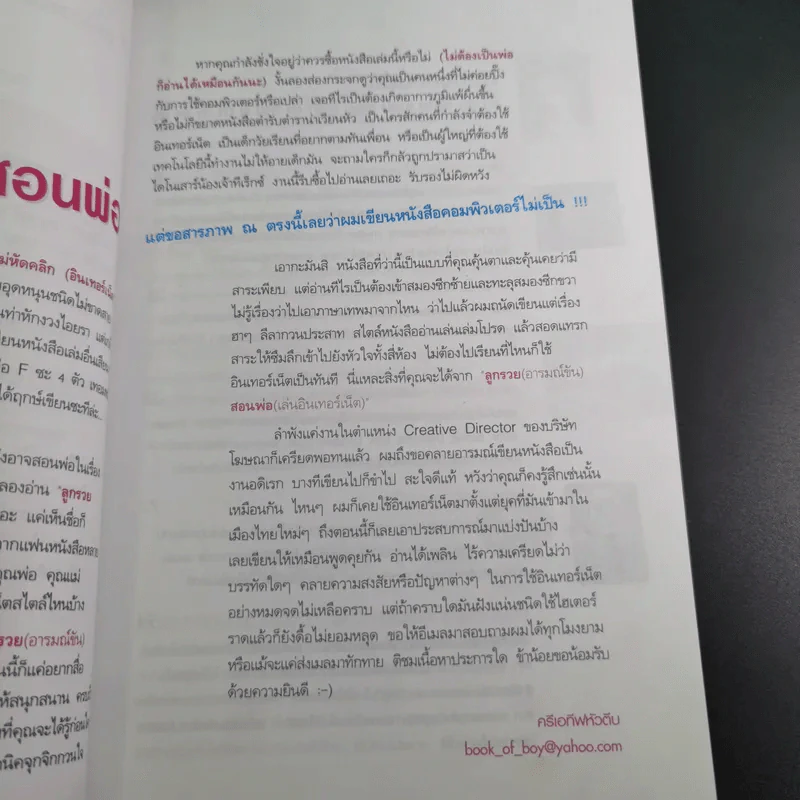 สอนพ่อ
ม่หัดคลิก (อินเทอร์เน็ต
ยอุดหนุนชนิดไม่ขาดสาย
นท่าหักงวงไอยรา
ยนหนังสือเล่มอื่น
อ F ซะ 4 ตัว
ได้ฤกษ์เขียนซะทีล่ะ...
งอาจสอนพ่อในเรื่อง
ลองอ่าน "ลูกรวย
อะ แค่เห็นชื่อก็
จากแฟนหนังสือหลาย
คุณพ่อ คุณแม่
น็ตสไตล์ไหนบ้าง
กรวย(อารมณ์ขัน)
นนี้ก็แค่อยากสื่อ
ห้สนุกสนาน
ที่คุณจะได้รู้ก่อน
นิคจุกจิกกวนใจ
หากคุณกำลังชั่งใจอยู่ว่าควรซื้อหนังสือเล่มนี้หรือไม่ (ไม่ต้องเป็นพ่อ
ก็อ่านได้เหมือนกันนะ) งั้นลองส่องกระจกดูว่าคุณเป็นคนหนึ่งที่ไม่ค่อยปิ๊ง
กับการใช้คอมพิวเตอร์หรือเปล่า เจอทีไรเป็นต้องเกิดอาการภูมิแพ้ผื่นขึ้น
หรือไม่ก็ขยาดหนังสือตำรับตำราน่าเวียนหัว เป็นใครสักคนที่กำลังจำต้องใช้
อินเทอร์เน็ต เป็นเด็กวัยเรียนที่อยากตามทันเพื่อน หรือเป็นผู้ใหญ่ที่ต้องใช้
เทคโนโลยีนี้ทำงานไม่ให้อายเด็กมัน จะถามใครก็กลัวถูกปรามาสว่าเป็น
ไดโนเสาร์น้องเจ้าทีเร็กซ์ งานนี้รีบซื้อไปอ่านเลยเถอะ รับรองไม่ผิดหวัง
แต่ขอสารภาพ ณ ตรงนี้เลยว่าผมเขียนหนังสือคอมพิวเตอร์ไม่เป็น !!!
เอากะมันสิ หนังสือที่ว่านี้เป็นแบบที่คุณคุ้นตาและคุ้นเคยว่ามี
สาระเพียบ แต่อ่านทีไรเป็นต้องเข้าสมองซีกซ้ายและทะลุสมองซีกขวา
ไม่รู้เรื่องว่าไปเอาภาษาเทพมาจากไหน ว่าไปแล้วผมถนัดเขียนแต่เรื่อง
ฮาๆ ลีลากวนประสาท สไตล์หนังสืออ่านเล่นเล่มโปรด แล้วสอดแทรก
สาระให้ซึมลึกเข้าไปยังหัวใจทั้งสี่ห้อง ไม่ต้องไปเรียนที่ไหนก็ใช้
อินเทอร์เน็ตเป็นทันที นี่แหละสิ่งที่คุณจะได้จาก "ลูกรวย(อารมณ์ขัน)
สอนพ่อ(เล่นอินเทอร์เน็ต)"
ลำพังแค่งานในตำแหน่ง Creative Director ของบริษัท
โฆษณาก็เครียดพอทนแล้ว ผมถึงขอคลายอารมณ์เขียนหนังสือเป็น
งานอดิเรก บางทีเขียนไปก็ขำไป สะใจดีแท้ หวังว่าคุณก็คงรู้สึกเช่นนั้น
เหมือนกัน ไหนๆ ผมก็เคยใช้อินเทอร์เน็ตมาตั้งแต่ยุคที่มันเข้ามาใน
เมืองไทยใหม่ๆ ถึงตอนนี้ก็เลยเอาประสบการณ์มาแบ่งปันบ้าง
เลยเขียนให้เหมือนพูดคุยกัน อ่านได้เพลิน ไร้ความเครียดไม่ว่า
บรรทัดใดๆ คลายความสงสัยหรือปัญหาต่างๆ ในการใช้อินเทอร์เน็ต
อย่างหมดจดไม่เหลือคราบ แต่ถ้าคราบใดมันฝังแน่นชนิดใช้ไฮเตอร์
ราดแล้วก็ยังดื้อไม่ยอมหลุด ขอให้อีเมลมาสอบถามผมได้ทุกโมงยาม
หรือแม้จะแค่ส่งเมลมาทักทาย ติชมเนื้อหาประการใด ข้าน้อยขอน้อมรับ
ด้วยความยินดี :-)
ครีเอทีฟหัวตีบ
book_of_boy@yahoo.com